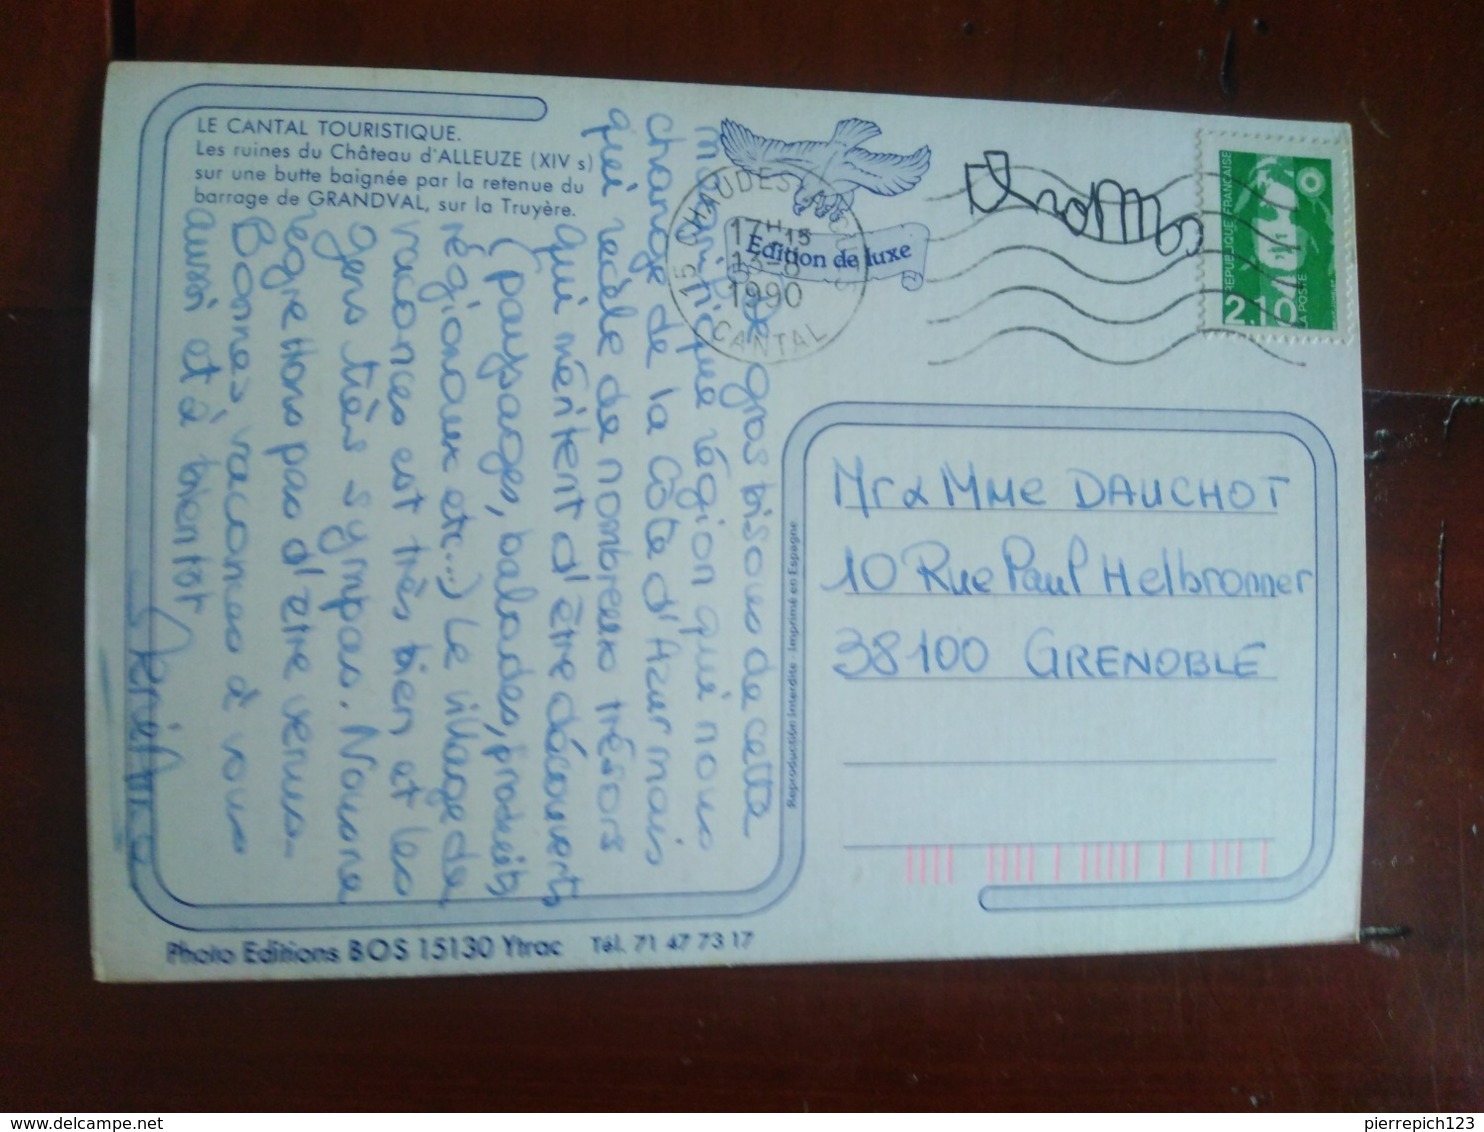 LE CANTAL TOURISTIQUE.
Les ruines du Château d'ALLEUZE (XIV s)
sur une butte baignée par la retenue du
barrage de GRANDVAL, sur la Truyère.
De gros bisous de cette
magnifique région qui nous
change de la Côte d'Azur mais
qui recèle de nombreux trésors
qui méritent d'être découverts
(paysages, balades, produits
régionaux etc...) Le village de
vacances est très bien et les
gens très sympas. Nous ne
regrettons pas d'être venus.
Bonnes vacances à vous
aussi et à bientôt
15 CHAUDES-AIGUES
17H15
13-8
1990
CANTAL
Edition de luxe
REPUBLIQUE FRANÇAISE
2,10
LA POSTE
Mr & Mme DAUCHOT
10 Rue Paul Helbronner
38100 GRENOBLE
Reproduction interdite - Imprimé en Espagne
Photo Editions BOS 15130 Ytrac Tél. 71 47 73 17
pierrepich123